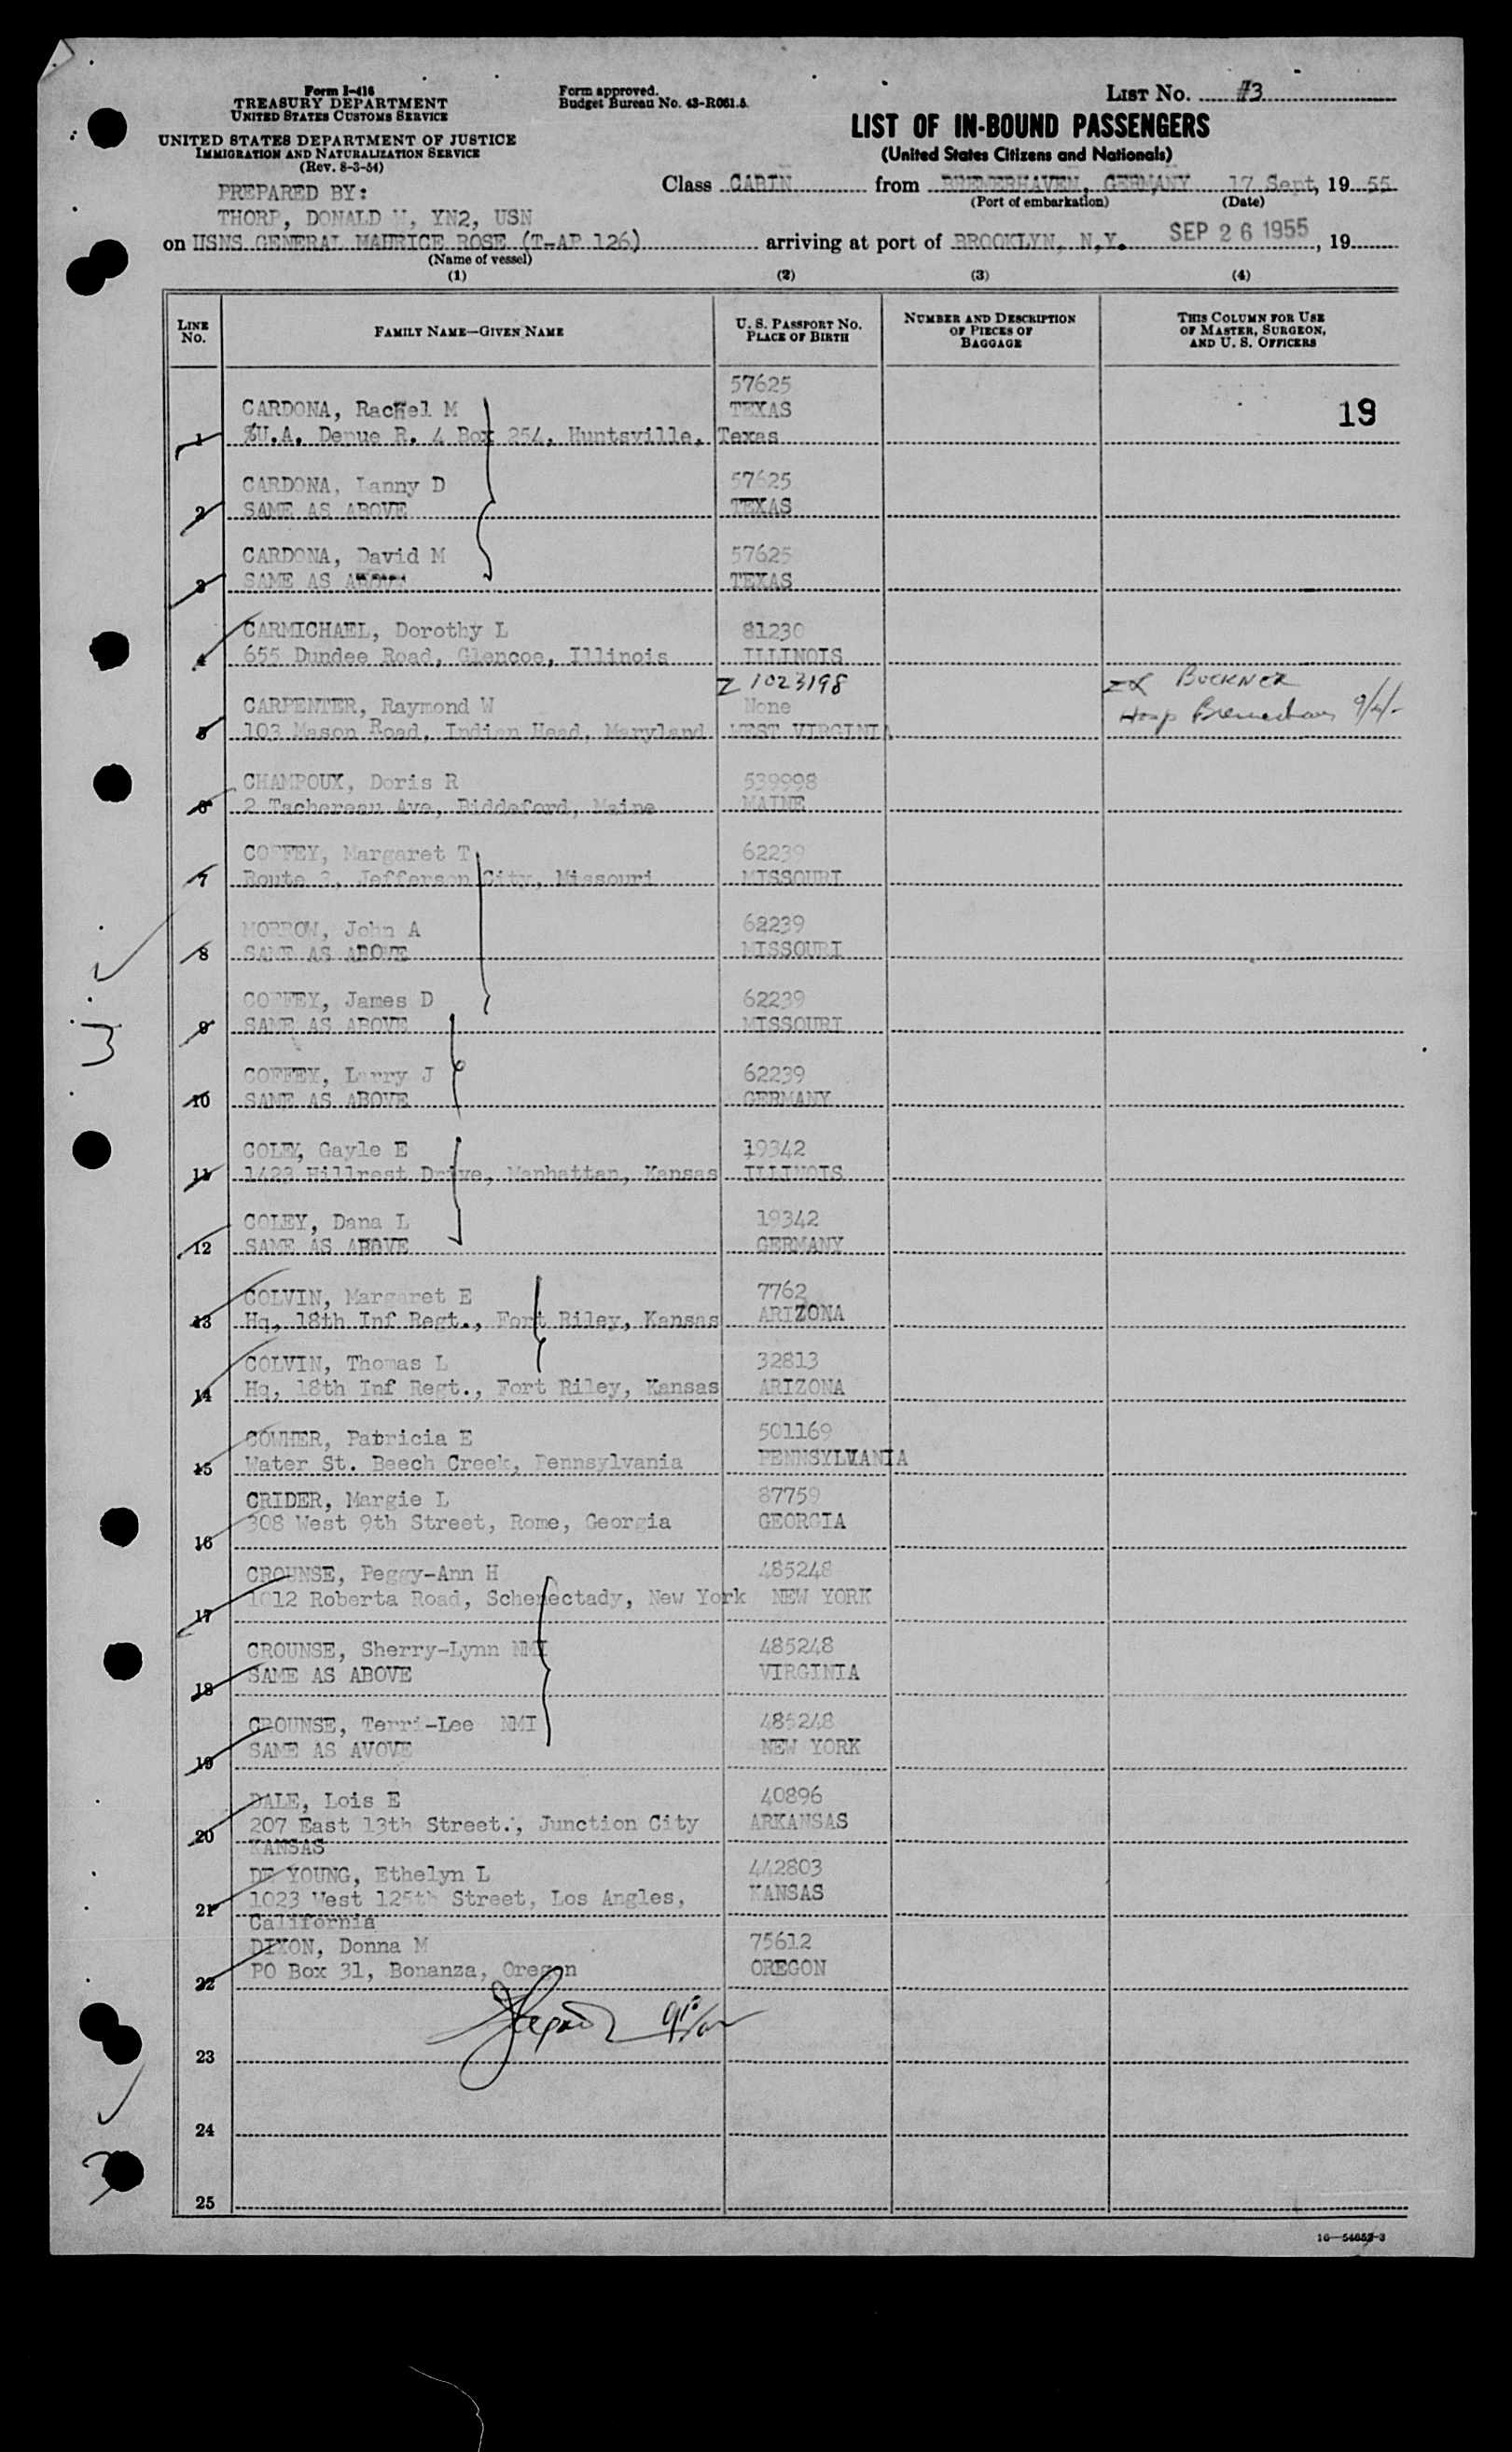 Form I-416
TREASURY DEPARTMENT
UNITED STATES CUSTOMS SERVICE
UNITED STATES DEPARTMENT OF JUSTICE
IMMIGRATION AND NATURALIZATION SERVICE
(Rev. 8-3-54)
Form approved.
Budget Bureau No. 43-R061.5.
LIST NO. #3
LIST OF IN-BOUND PASSENGERS
(United States Citizens and Nationals)
PREPARED BY:
THORP, DONALD , YN2, USN
Class CABIN from BREMERHAVEN, GERMANY 17 Sept, 19 55
(Port of embarkation) (Date)
on USNS GENERAL MAURICE ROSE (T-AP 126) arriving at port of BROOKLYN, N.Y. SEP 26 1955, 19
(Name of vessel)
(1) (2) (3) (4)
LINE NO. FAMILY NAME—GIVEN NAME U. S. PASSPORT NO. PLACE OF BIRTH NUMBER AND DESCRIPTION OF PIECES OF BAGGAGE THIS COLUMN FOR USE OF MASTER, SURGEON, AND U. S. OFFICERS
57625
CARDONA, Rachel M TEXAS 19
1 %U.A. Depue R. 4 Box 254, Huntsville, Texas
CARDONA, Lanny D 57625
2 SAME AS ABOVE TEXAS
CARDONA, David M 57625
3 SAME AS ABOVE TEXAS
CARMICHAEL, Dorothy L 81230
4 655 Dundee Road, Glencoe, Illinois ILLINOIS
Z 1023198 BUCKNER
CARPENTER, Raymond W None Hosp
5 103 Mason Road, Indian Head, Maryland WEST VIRGINIA
CHAMPOUX, Doris R 539998
6 2 Tachereau Ave, Biddeford, Maine MAINE
COFFEY, Margaret T 62239
7 Route 3, Jefferson City, Missouri MISSOURI
MORROW, John A 62239
8 SAME AS ABOVE MISSOURI
COFFEY, James D 62239
9 SAME AS ABOVE MISSOURI
COFFEY, Larry J 62239
10 SAME AS ABOVE GERMANY
COLEY, Gayle E 19342
11 1423 Hillrest Drive, Manhattan, Kansas ILLINOIS
COLEY, Dana L 19342
12 SAME AS ABOVE GERMANY
COLVIN, Margaret E 7762
13 Hq, 18th Inf Regt., Fort Riley, Kansas ARIZONA
COLVIN, Thomas L 32813
14 Hq, 18th Inf Regt., Fort Riley, Kansas ARIZONA
COWHER, Patricia E 501169
15 Water St. Beech Creek, Pennsylvania PENNSYLVANIA
CRIDER, Margie L 87759
16 308 West 9th Street, Rome, Georgia GEORGIA
CROUNSE, Peggy-Ann H 485248
17 1012 Roberta Road, Schenectady, New York NEW YORK
CROUNSE, Sherry-Lynn NMI 485248
18 SAME AS ABOVE VIRGINIA
CROUNSE, Terri-Lee NMI 485248
19 SAME AS AVOVE NEW YORK
DALE, Lois E 40896
20 207 East 13th Street., Junction City ARKANSAS
KANSAS
DE YOUNG, Ethelyn L 442803
21 1023 West 125th Street, Los Angles, KANSAS
California
DIXON, Donna M 75612
22 PO Box 31, Bonanza, Oregon OREGON
23
24
25
16—54652-3